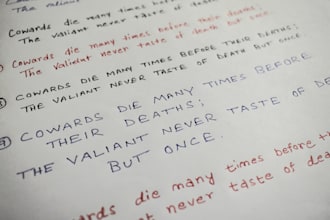 The valiant never taste of
Cowards die many times before their deaths;
The valiant never taste of death but once.
Cowards die many times before their deaths;
The Valident never taste of death but once.
COWARDS DIE MANY TIMES BEFORE THEIR DEATHS;
THE VALIANT NEVER TASTE OF DEATH BUT ONCE.
4 COWARDS DIE MANY TIMES BEFORE
THEIR DEATHS;
THE VALIANT NEVER TASTE OF DE
BUT ONCE.
ards die many times before th
t never taste of dea